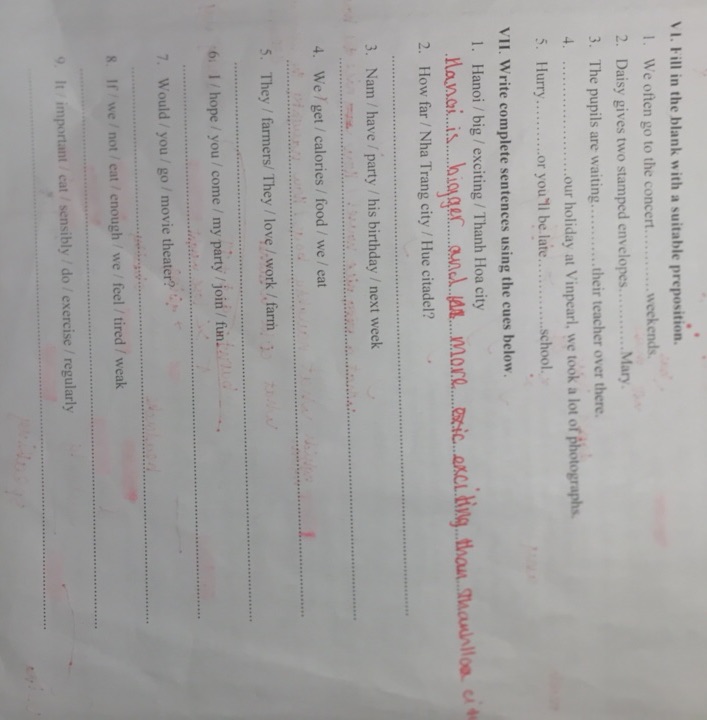 VI. Fill in the blank with a suitable preposition.
1. We often go to the concert............weekends.
2. Daisy gives two stamped envelopes..........Mary.
3. The pupils are waiting............their teacher over there.
4. .....................our holiday at Vinpearl, we took a lot of photographs.
5. Hurry...........or you'll be late............school.
VII. Write complete sentences using the cues below.
1. Hanoi / big / exciting / Thanh Hoa city
Hanoi is bigger and more exciting than ThanhHoa
2. How far / Nha Trang city / Hue citadel?
3. Nam / have / party / his birthday / next week
4. We / get / calories / food / we / eat
5. They / farmers/ They / love / work / farm
6. I / hope / you / come / my party / join / fun.
7. Would / you / go / movie theater?
8. If / we / not / eat / enough / we / feel / tired / weak
9. It / important / eat / sensibly / do / exercise / regularly